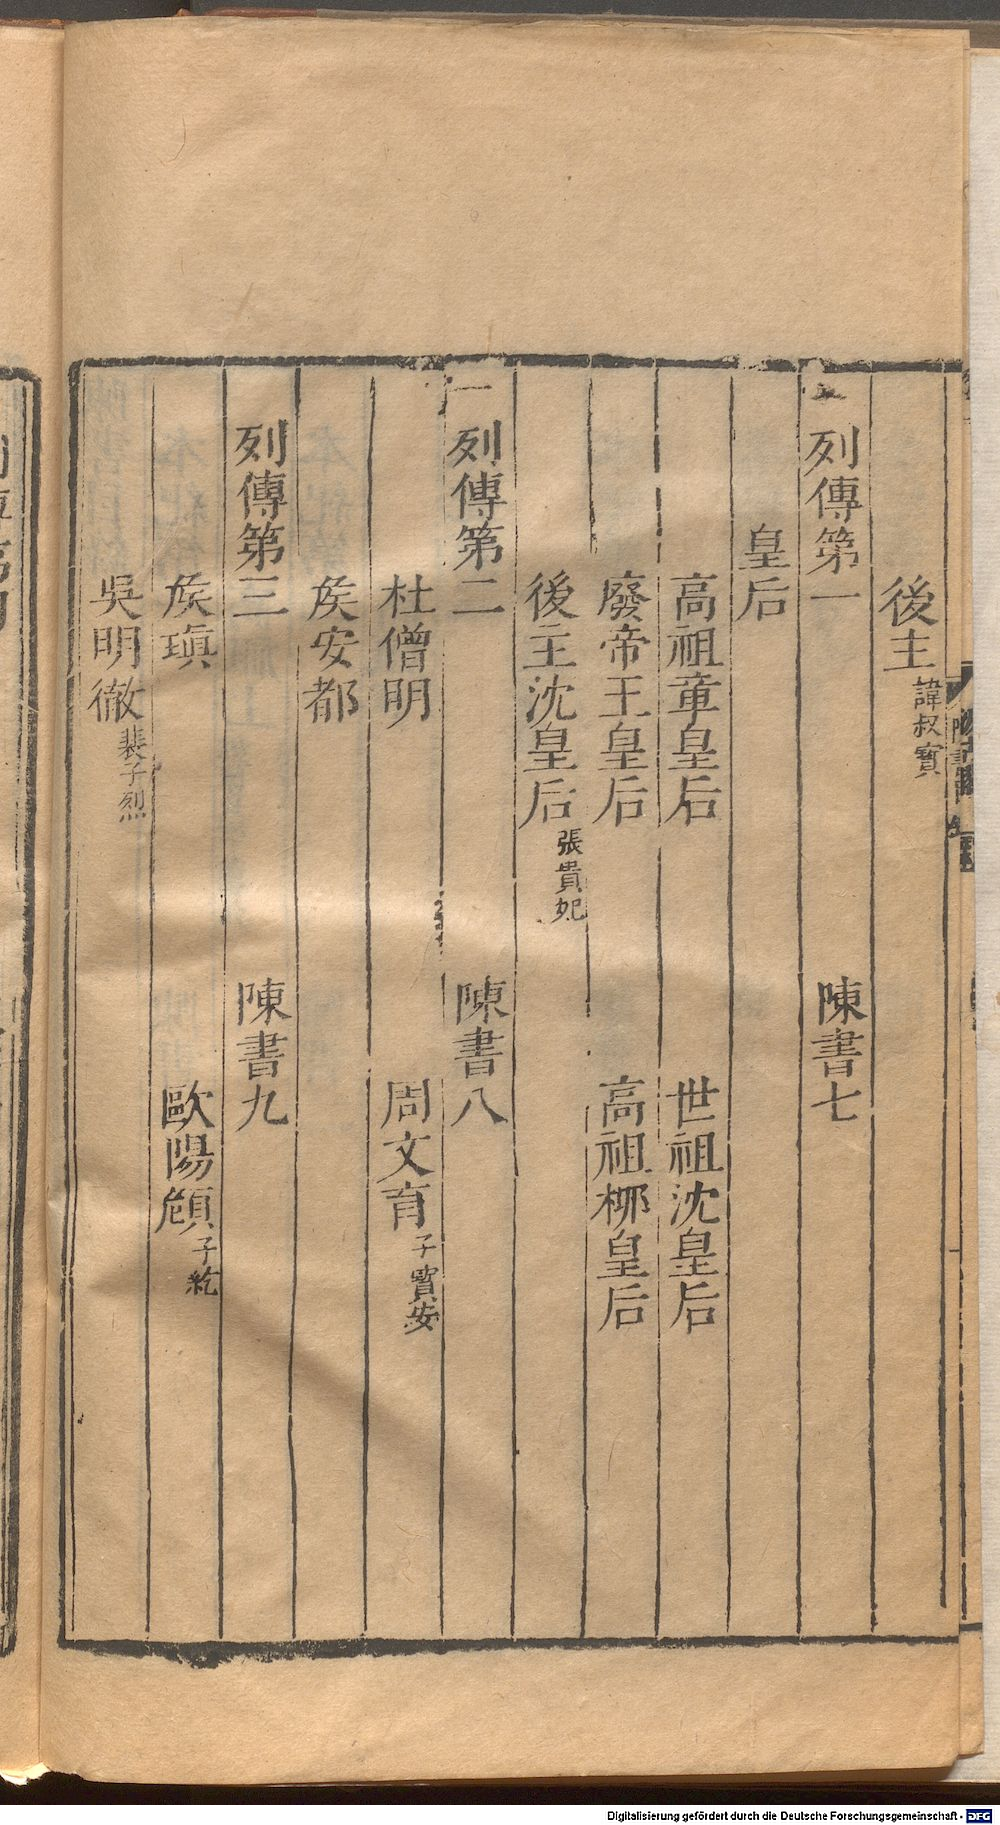 後主諱叔寳
列傳第一 陳書七
皇后
高祖章皇后 世祖沈皇后
廢帝王皇后 高祖柳皇后
後主沈皇后張貴妃
列傳第二 陳書八
杜僧明 周文育子寳安
侯安都
列傳第三 陳書九
侯瑱 歐陽頠子紇
吳明徹裴子烈
Digitalisierung gefördert durch die Deutsche Forschungsgemeinschaft - DFG